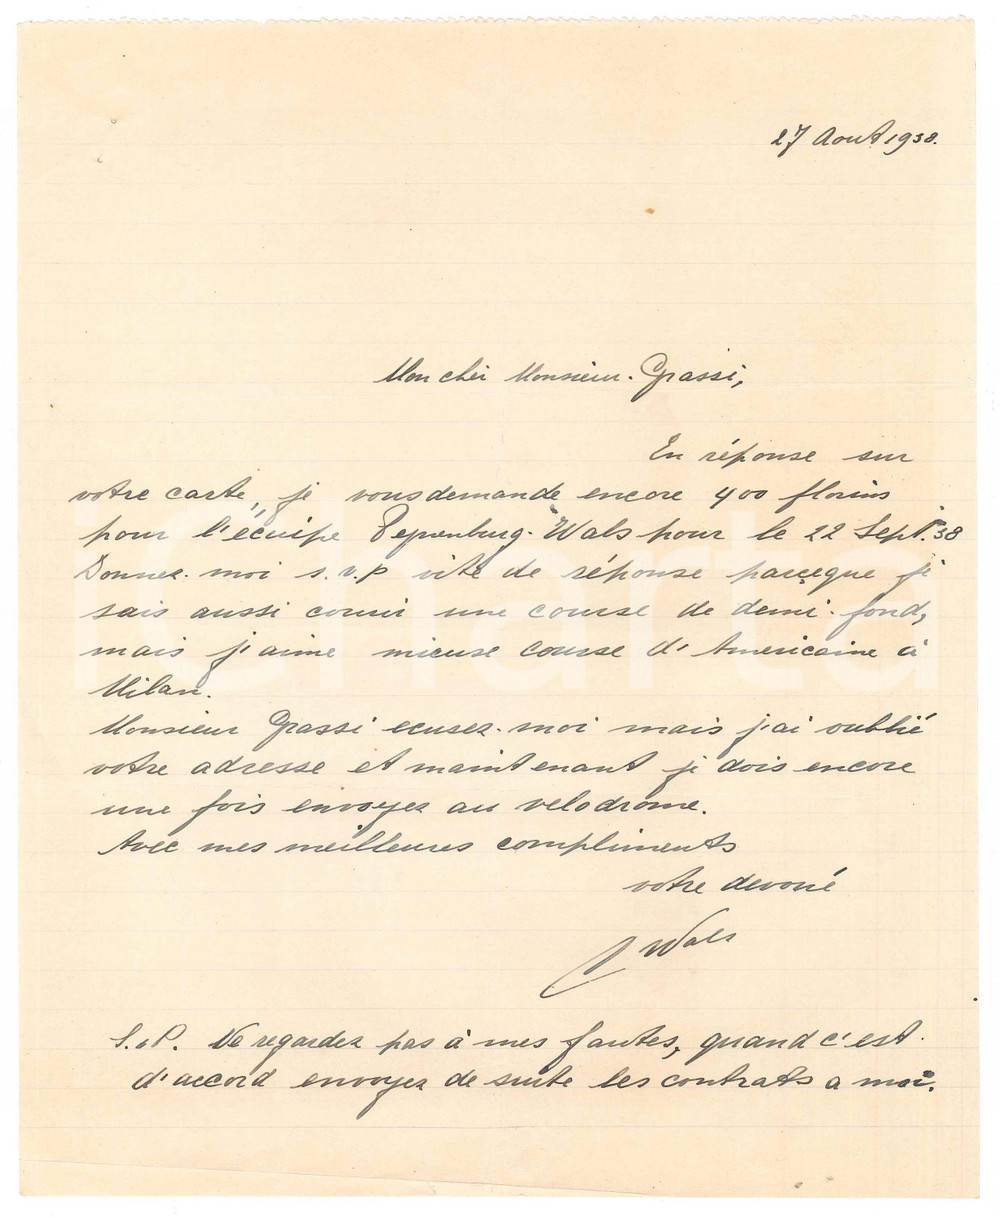 27 Aout 1938.
Mon cher Monsieur. Grassi,
En réponse sur
votre carte, je vous demande encore 400 florins
pour l'écuipe Pepenburg. Wals pour le 22 Sept. 38
Donnez. moi s.v.p vite de réponse parçeque je
sais aussi courir une course de demi-fond,
mais j'aime mieuse course d'Americaine à
Milan.
Monsieur Grassi ecusez-moi mais j'ai oublié
votre adresse et maintenant je dois encore
une fois envoyez au velodrome.
Avec mes meilleures compliments
votre devoué
Wals
S.v P. Ne regardez pas à mes fautes, quand c'est
d'accord envoyez de suite les contrats a moi.
iCharta